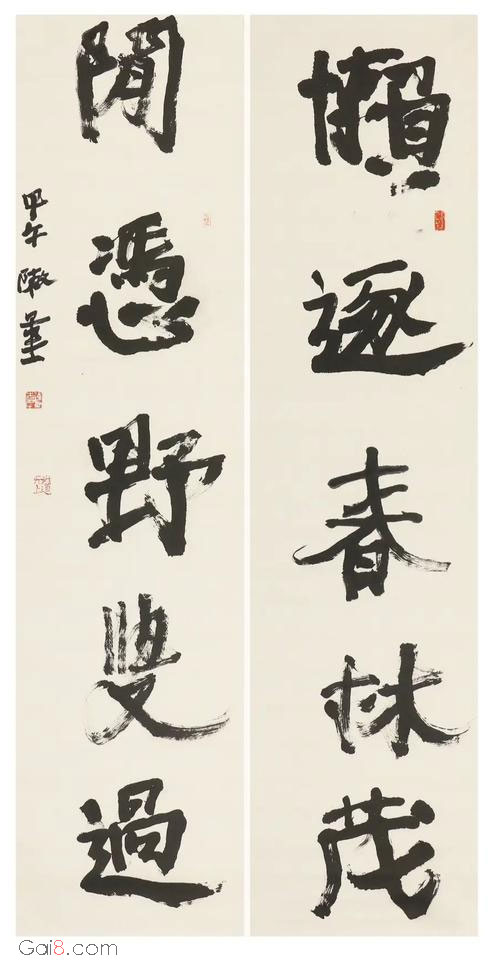 懶逐春林茂
閒憑野叟過
甲午
Gai8.com